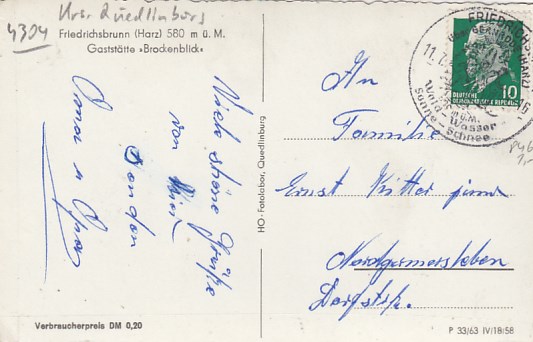 4304 Krs. Quedlinburg
Friedrichsbrunn (Harz) 580 m ü. M.
Gaststätte »Brockenblick«
Viele schöne Grüße
von hier
senden
Oma u Opa
HO-Fotolabor, Quedlinburg
Verbraucherpreis DM 0,20
FRIEDRICHSBRUNN
über GERNRODE (HARZ)
11.7.
m ü. M.
Wald - Wasser -
Sonne - Schnee
DEUTSCHE
DEMOKRATISCHE REPUBLIK
10
An
Familie
Ernst Ritter jun.
Nordgermersleben
Dorfstr.
P 33/63 IV/18/58